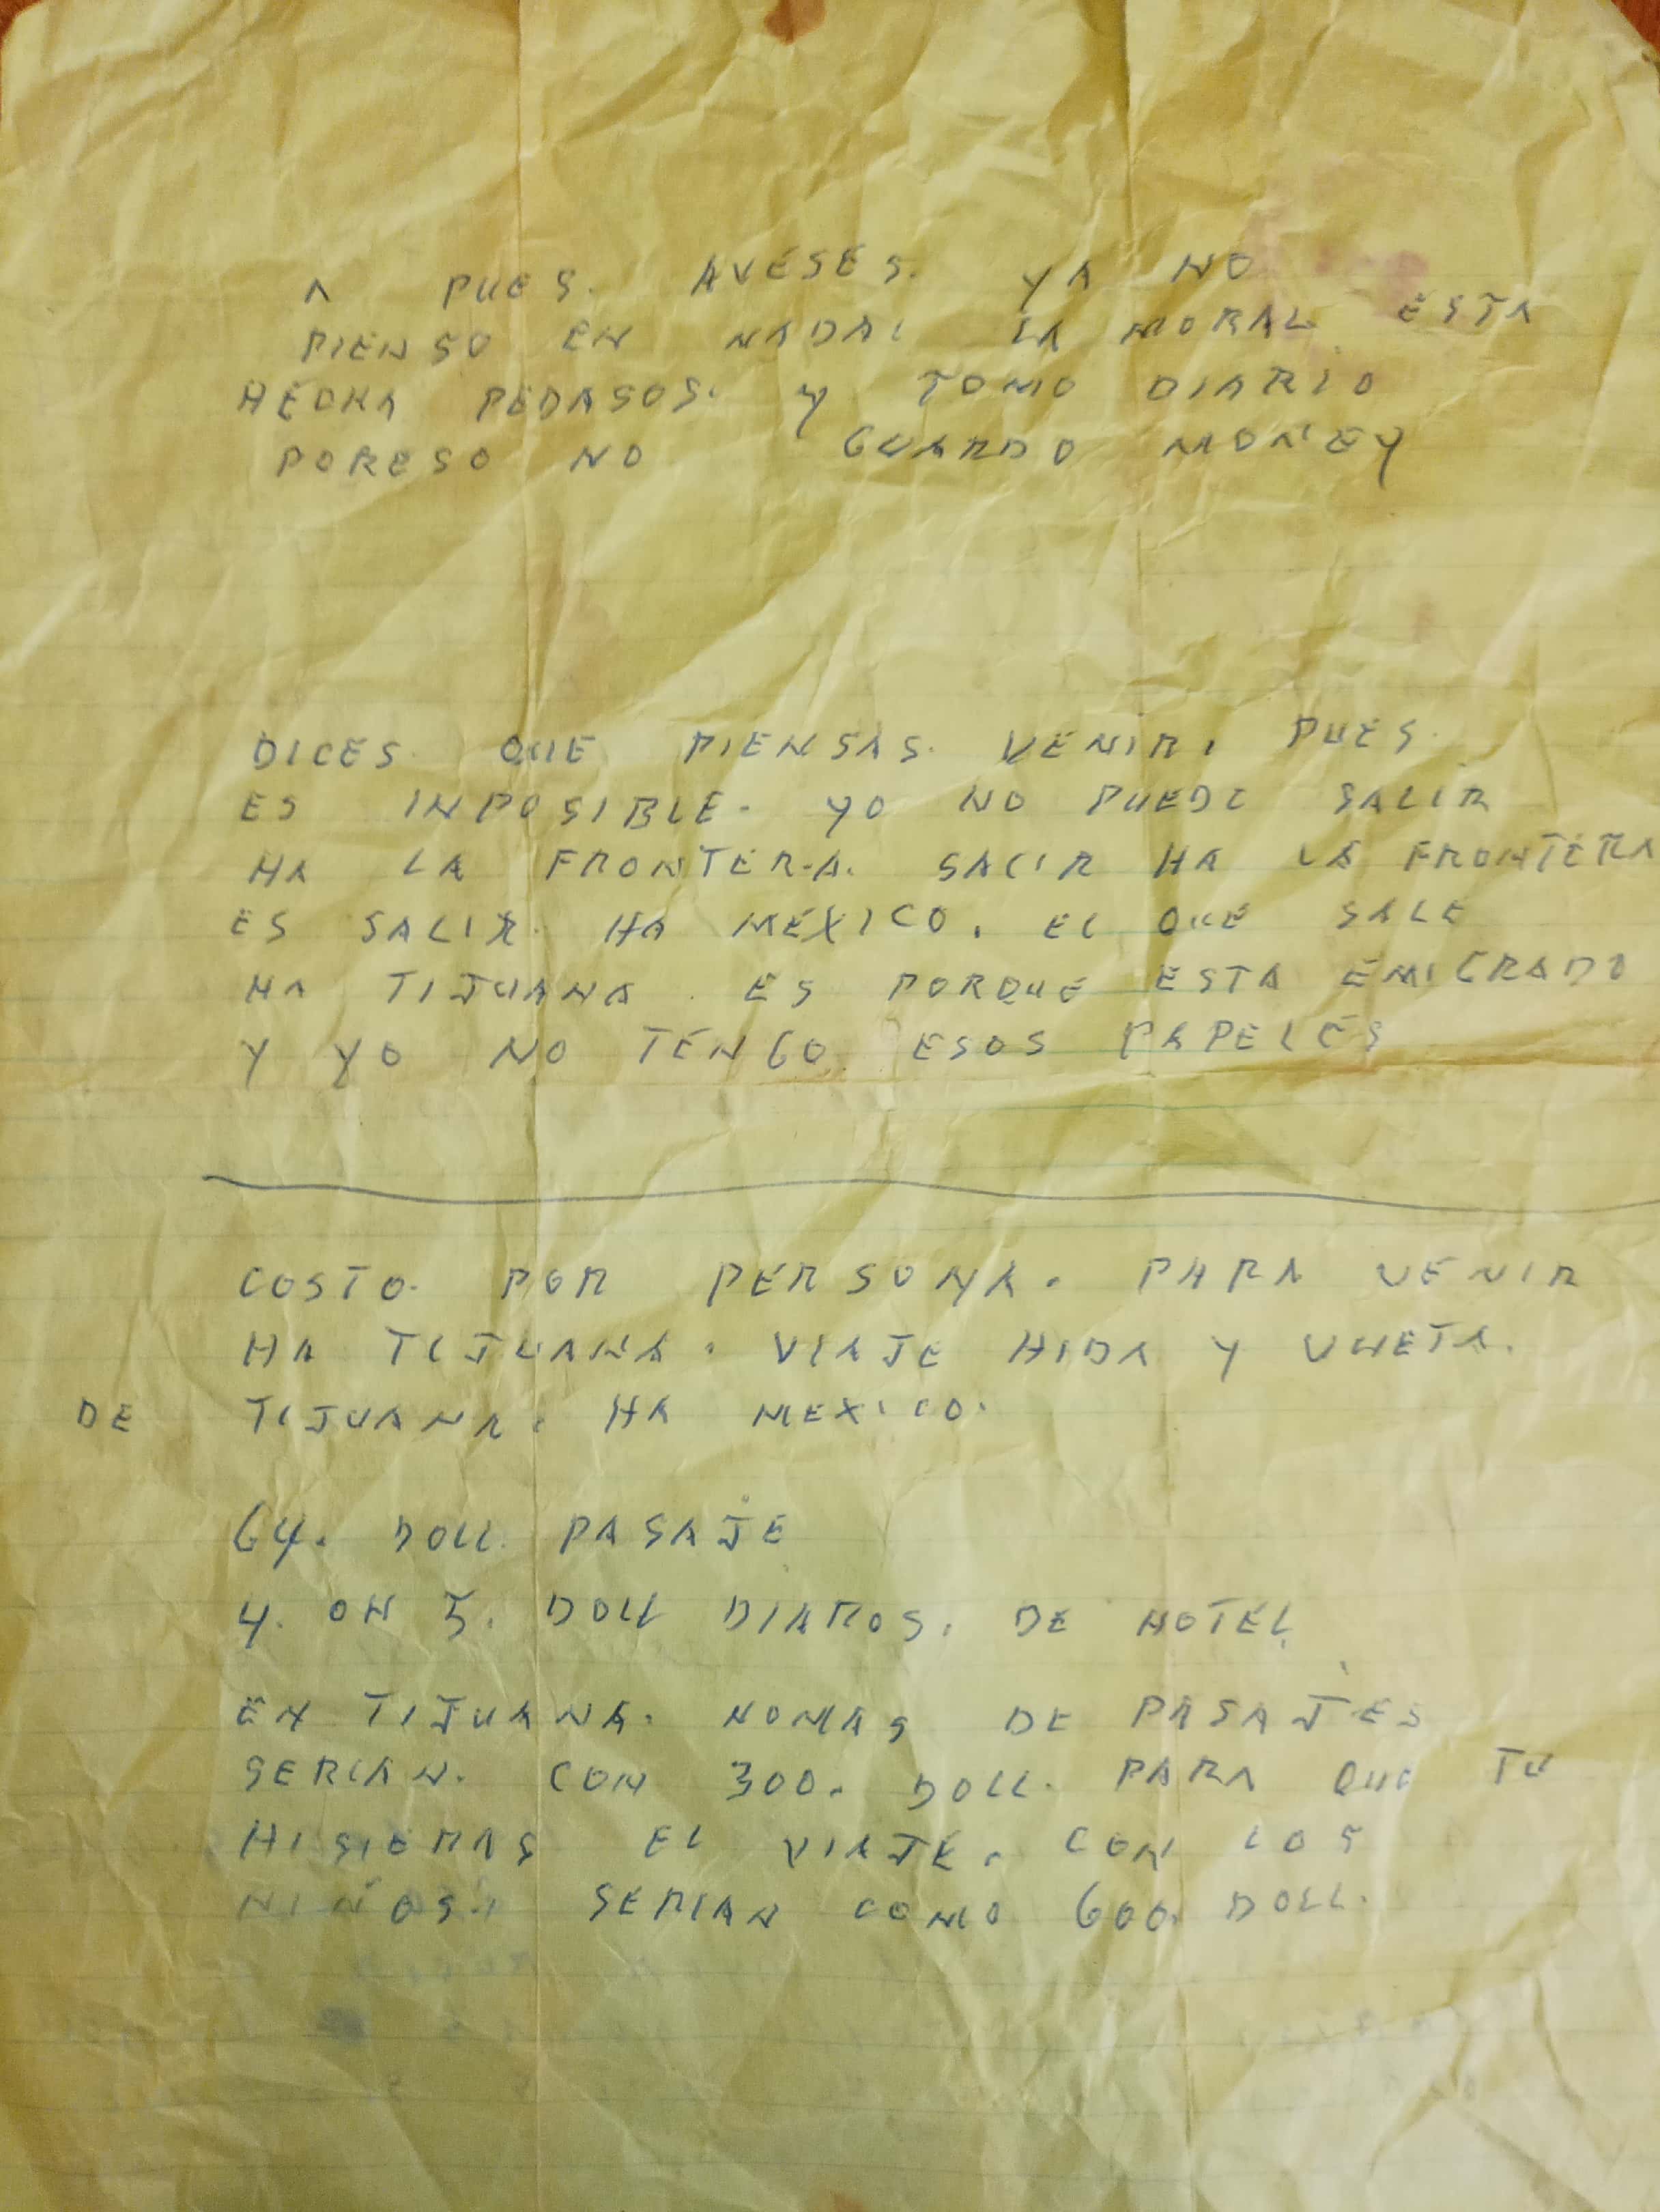 A PUES. AVESES. YA NO
PIENSO EN NADA. LA MORAL ESTA
HECHA PEDASOS. Y TOMO DIARIO
PORESO NO GUARDO MONEY
DICES QUE PIENSAS. VENIR, PUES.
ES INPOSIBLE. YO NO PUEDO SALIR
HA LA FRONTERA. SALIR HA LA FRONTERA
ES SALIR HA MEXICO. EL QUE SALE
HA TIJUANA. ES PORQUE ESTA EMIGRADO
Y YO NO TENGO ESOS PAPELES
COSTO. POR PERSONA. PARA VENIR
HA TIJUANA. VIAJE HIDA Y VUETA.
DE TIJUANA. HA MEXICO.
64. DOLL. PASAJE
4. OH 5. DOLL DIAROS. DE HOTEL
EN TIJUANA. NOMAS DE PASAJES
SERIAN. CON 300. DOLL. PARA QUE TU
HISIERAS EL VIAJE. CON LOS
NIÑOS. SERIAN COMO 600. DOLL.